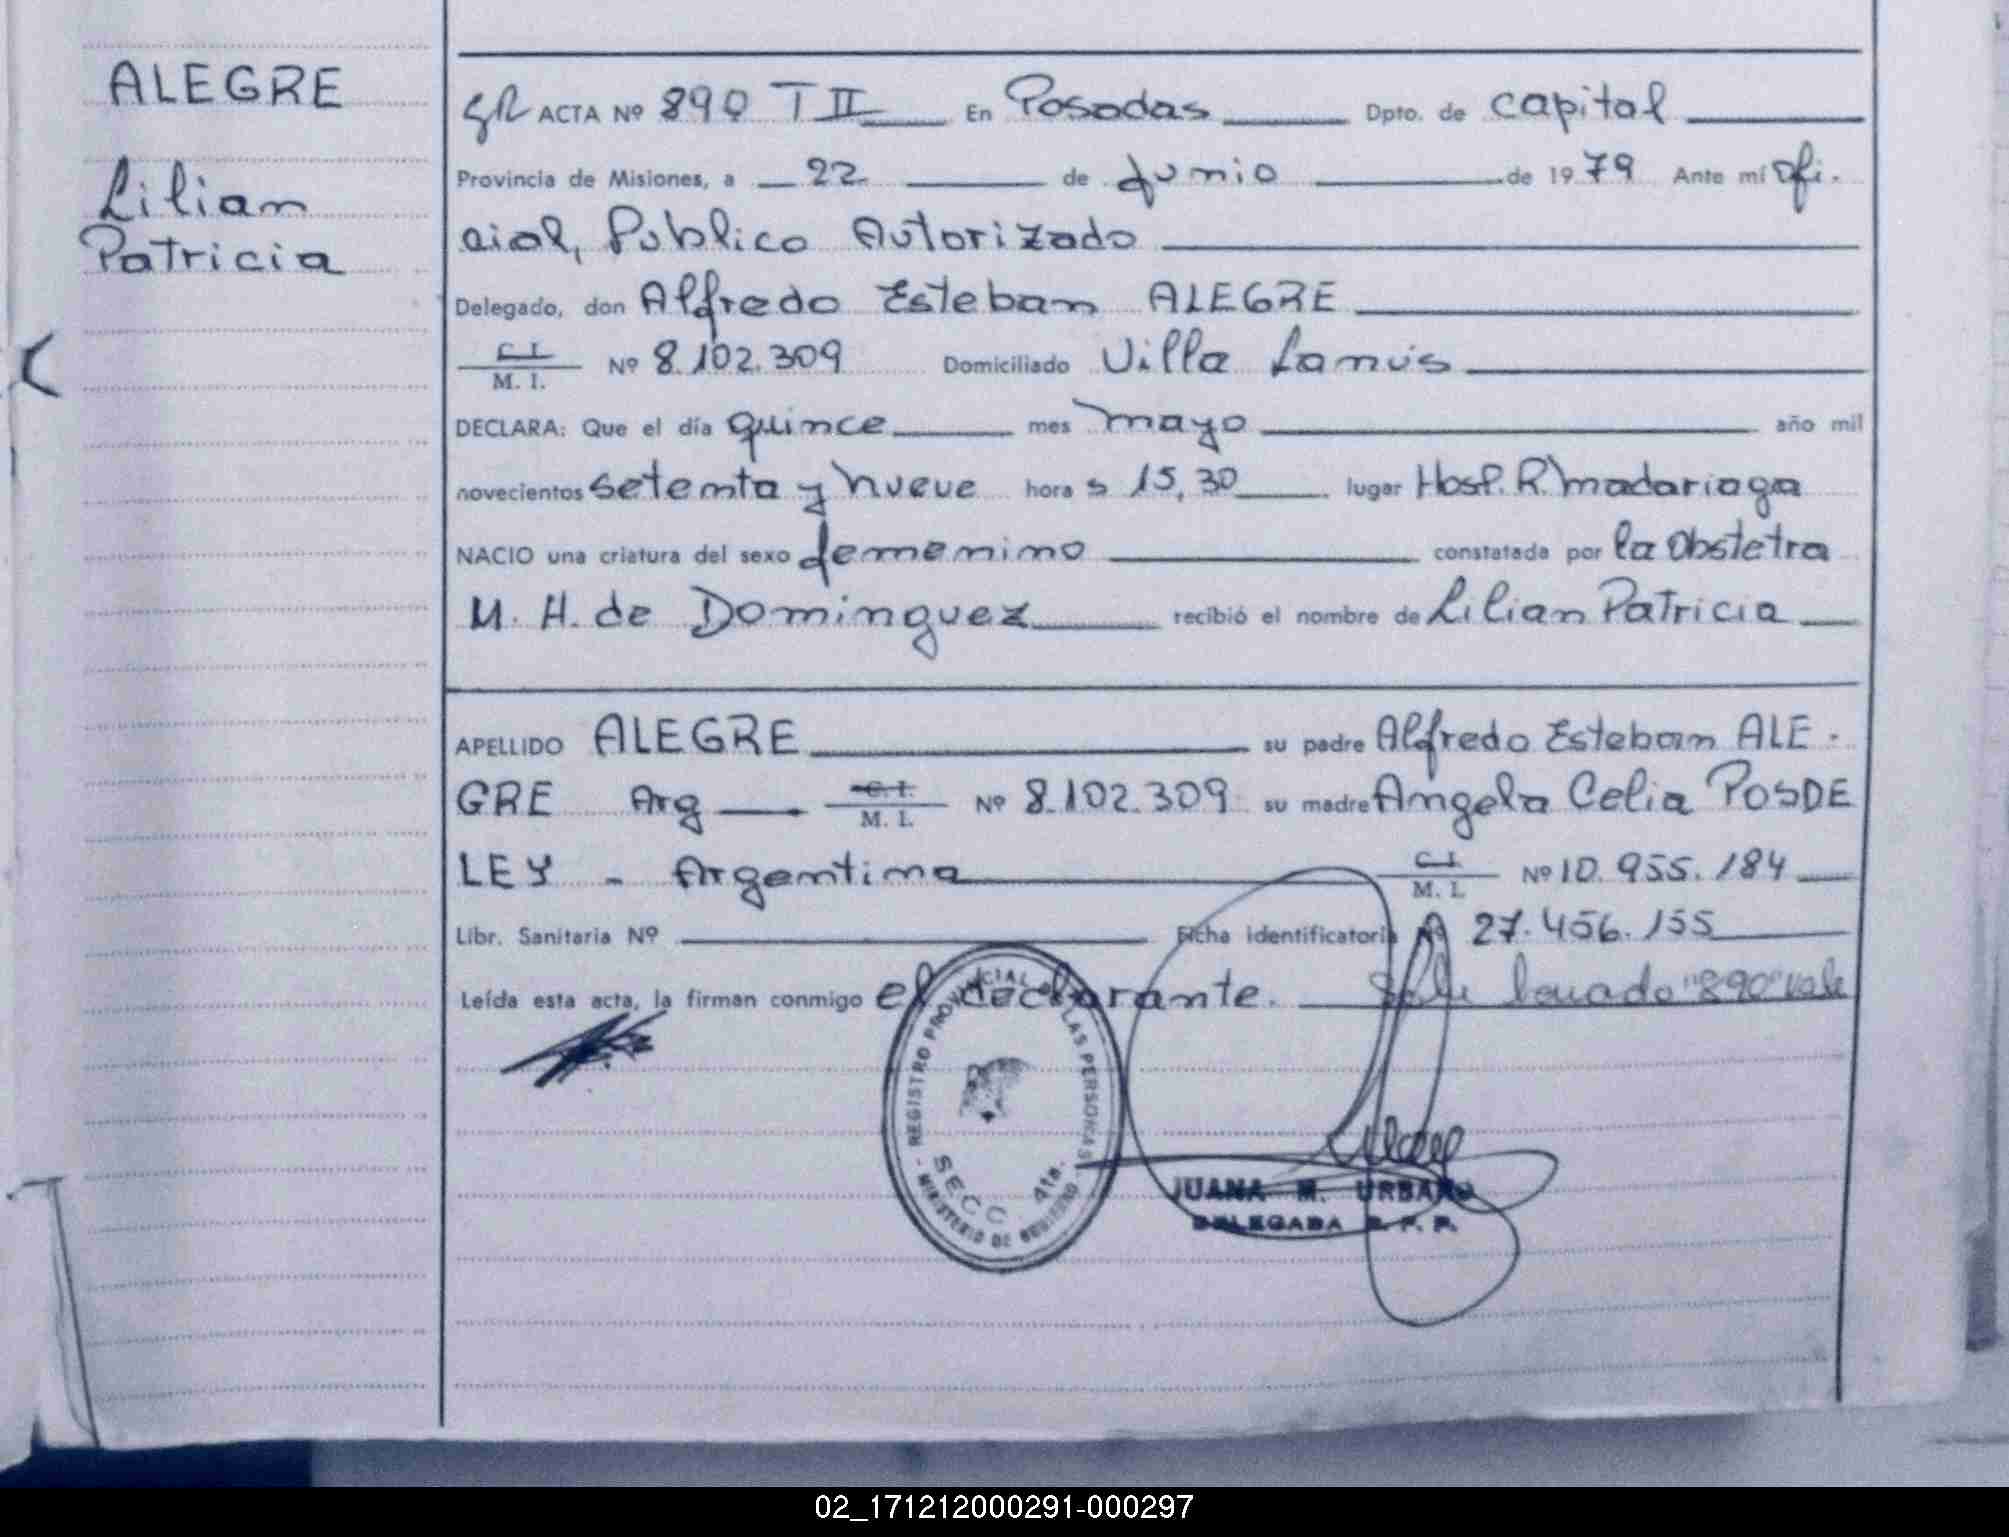 ALEGRE
Lilian
Patricia
ACTA Nº 890 T II En Posadas Dpto. de capital
Provincia de Misiones, a 22 de junio de 1979 Ante mí ofi-
cial, Publico Autorizado
Delegado, don Alfredo Esteban ALEGRE
C. I. / M. I. Nº 8.102.309 Domiciliado Villa Lanús
DECLARA: Que el día quince mes mayo año mil
novecientos setenta y nueve hora s 15,30 lugar Hosp. R. Madariaga
NACIO una criatura del sexo femenino constatada por la Obstetra
M. H. de Dominguez recibió el nombre de Lilian Patricia
APELLIDO ALEGRE su padre Alfredo Esteban ALE-
GRE Arg C. I. / M. I. Nº 8.102.309 su madre Angela Celia POSDE
LEY - Argentina C. I. / M. I. Nº 10.955.184
Libr. Sanitaria Nº Ficha identificatoria Nº 27.456.155
Leída esta acta, la firman conmigo el declarante. "890" vale
REGISTRO PROVINCIAL DE LAS PERSONAS
SECC 4ta.
MINISTERIO DE GOBIERNO
JUANA M. URBANO
DELEGADA R. P. P.
02_171212000291-000297